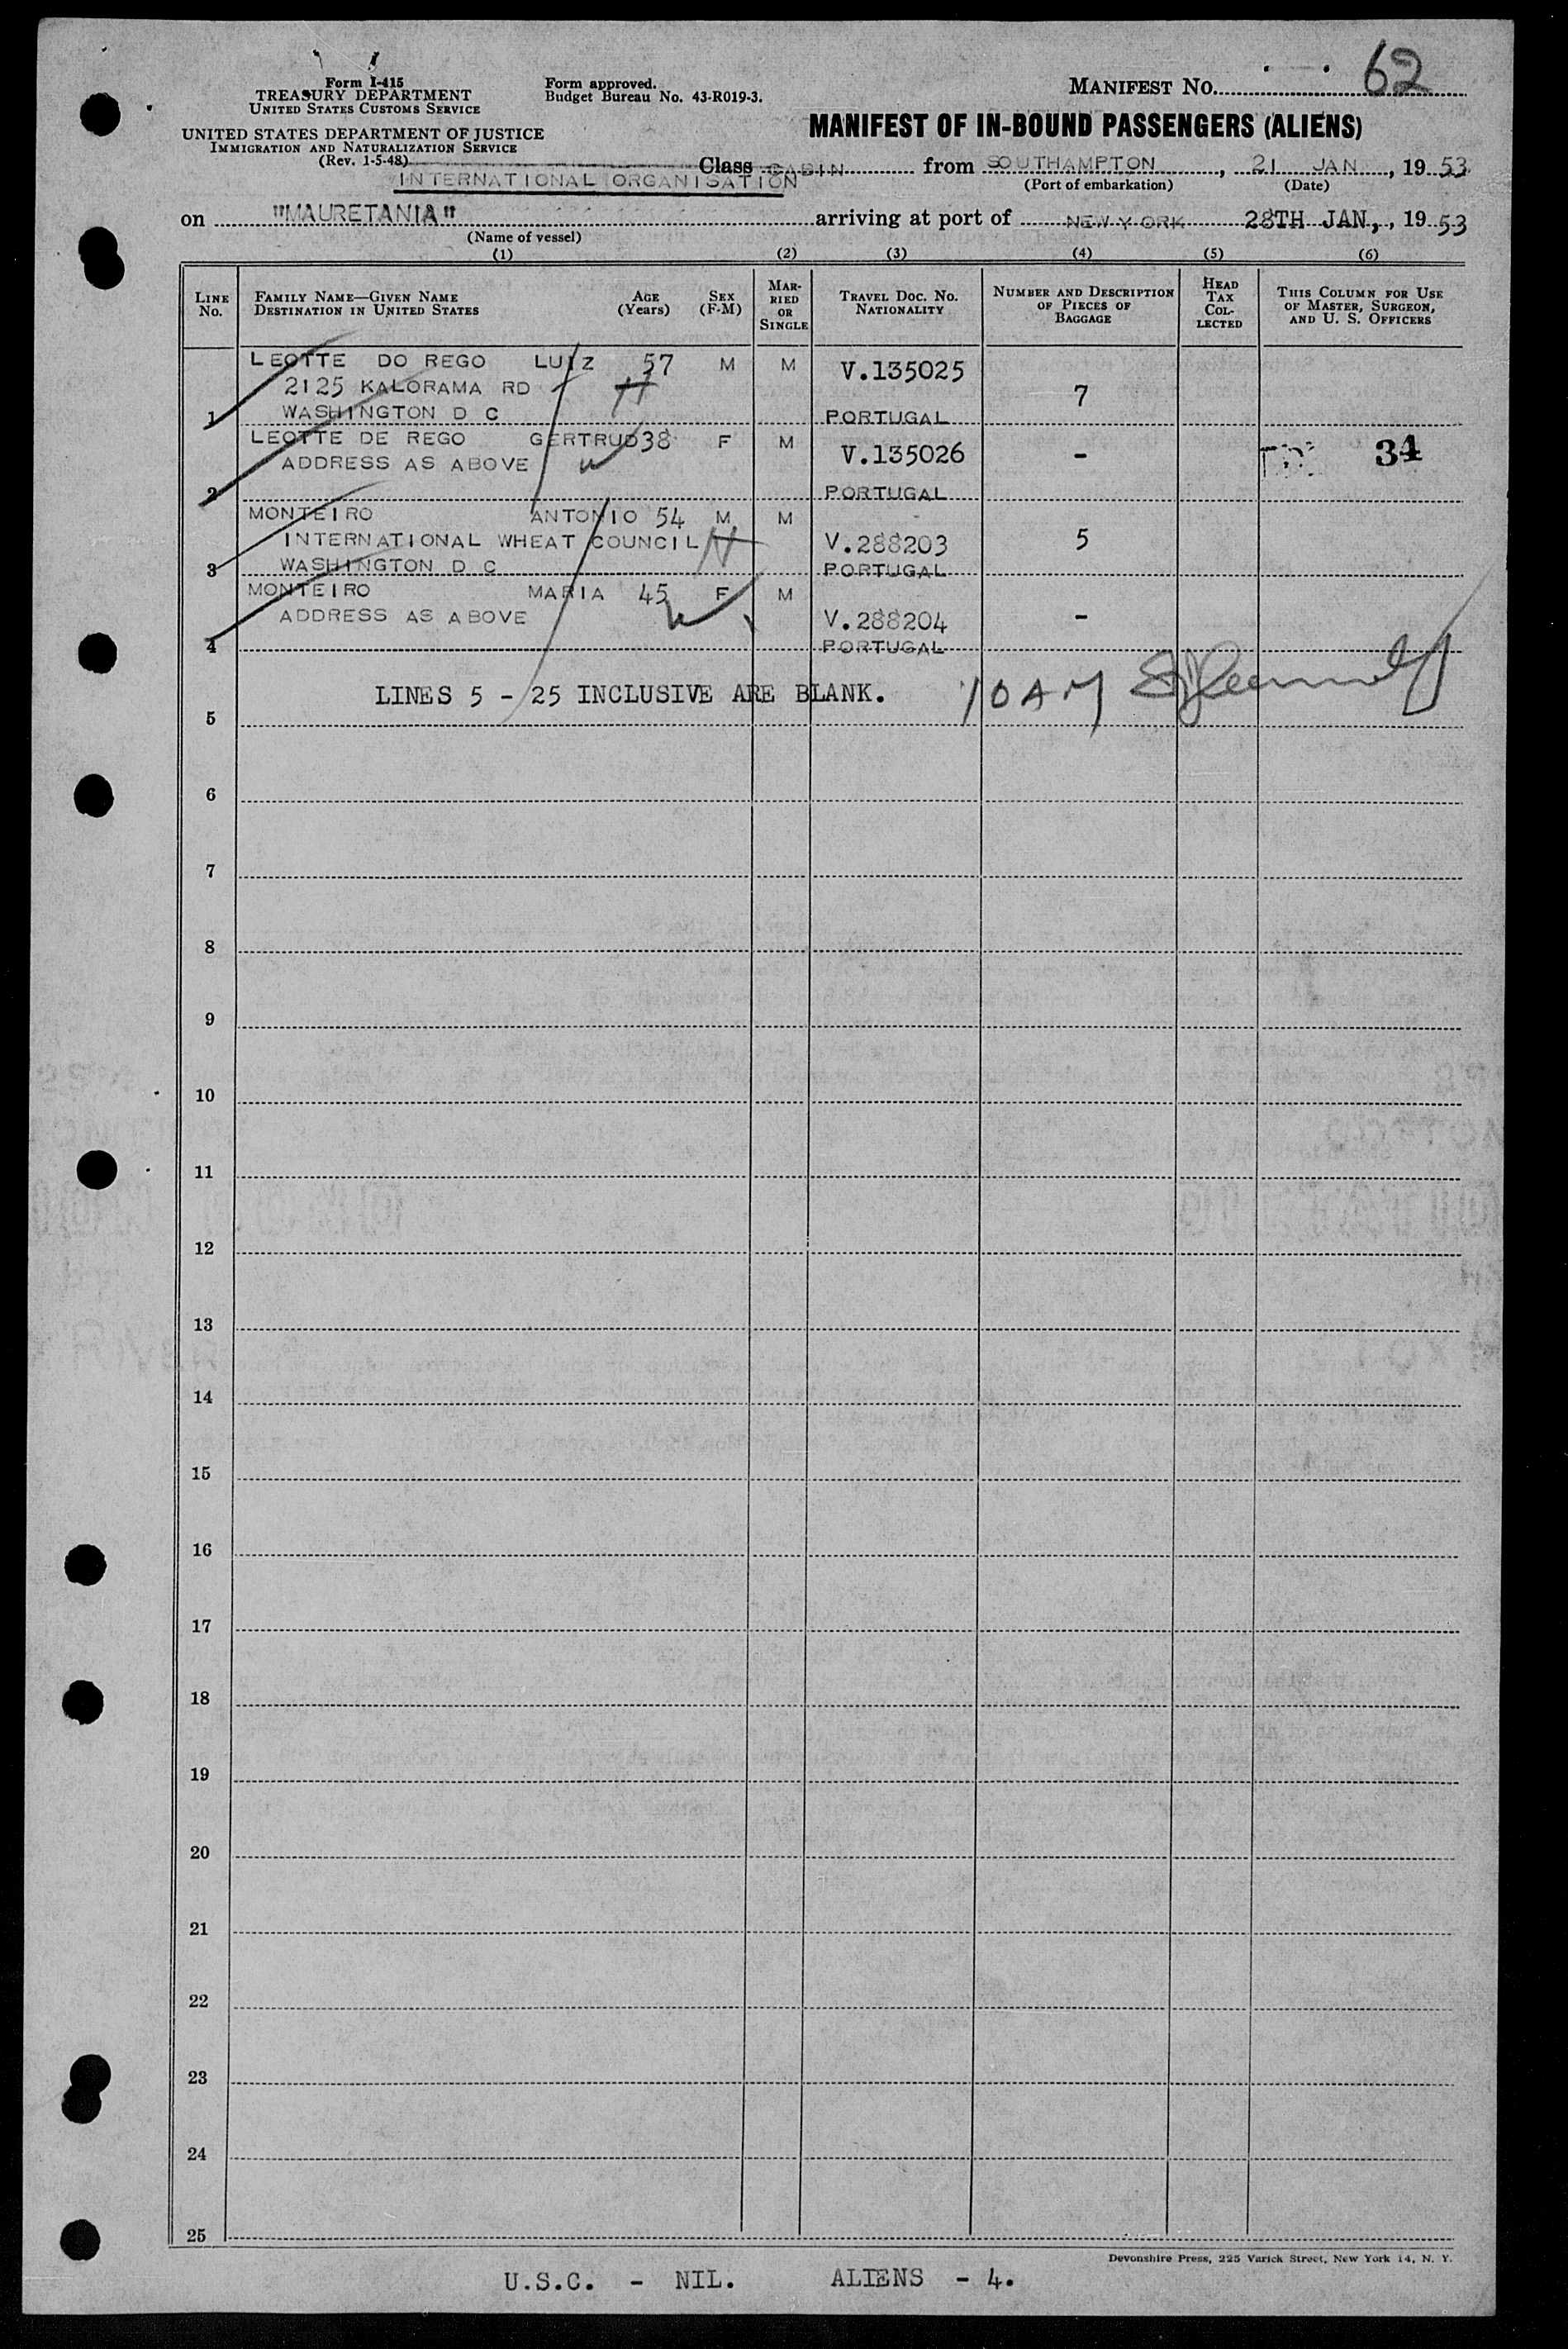 62
Form I-415
TREASURY DEPARTMENT
UNITED STATES CUSTOMS SERVICE
Form approved.
Budget Bureau No. 43-R019-3.
MANIFEST NO.
UNITED STATES DEPARTMENT OF JUSTICE
IMMIGRATION AND NATURALIZATION SERVICE
(Rev. 1-5-48)
MANIFEST OF IN-BOUND PASSENGERS (ALIENS)
Class CABIN from SOUTHAMPTON, 21 JAN, 1953
INTERNATIONAL ORGANISATION
(Port of embarkation) (Date)
on "MAURETANIA" arriving at port of NEW YORK 28TH JAN,, 1953
(Name of vessel)
(1) (2) (3) (4) (5) (6)
LINE No.
FAMILY NAME—GIVEN NAME
DESTINATION IN UNITED STATES
AGE (Years)
SEX (F-M)
MARRIED OR SINGLE
TRAVEL DOC. NO.
NATIONALITY
NUMBER AND DESCRIPTION OF PIECES OF BAGGAGE
HEAD TAX COLLECTED
THIS COLUMN FOR USE OF MASTER, SURGEON, AND U. S. OFFICERS
LEOTTE DO REGO LUIZ 57 M M V.135025
2125 KALORAMA RD 7
1 WASHINGTON D C PORTUGAL
LEOTTE DE REGO GERTRUD 38 F M V.135026 - 34
ADDRESS AS ABOVE
2 PORTUGAL
MONTEIRO ANTONIO 54 M M
INTERNATIONAL WHEAT COUNCIL V.288203 5
3 WASHINGTON D C PORTUGAL
MONTEIRO MARIA 45 F M
ADDRESS AS ABOVE V.288204 -
4 PORTUGAL
LINES 5 - 25 INCLUSIVE ARE BLANK. 10AM
5
6
7
8
9
10
11
12
13
14
15
16
17
18
19
20
21
22
23
24
25
Devonshire Press, 225 Varick Street, New York 14, N. Y.
U.S.C. - NIL. ALIENS - 4.